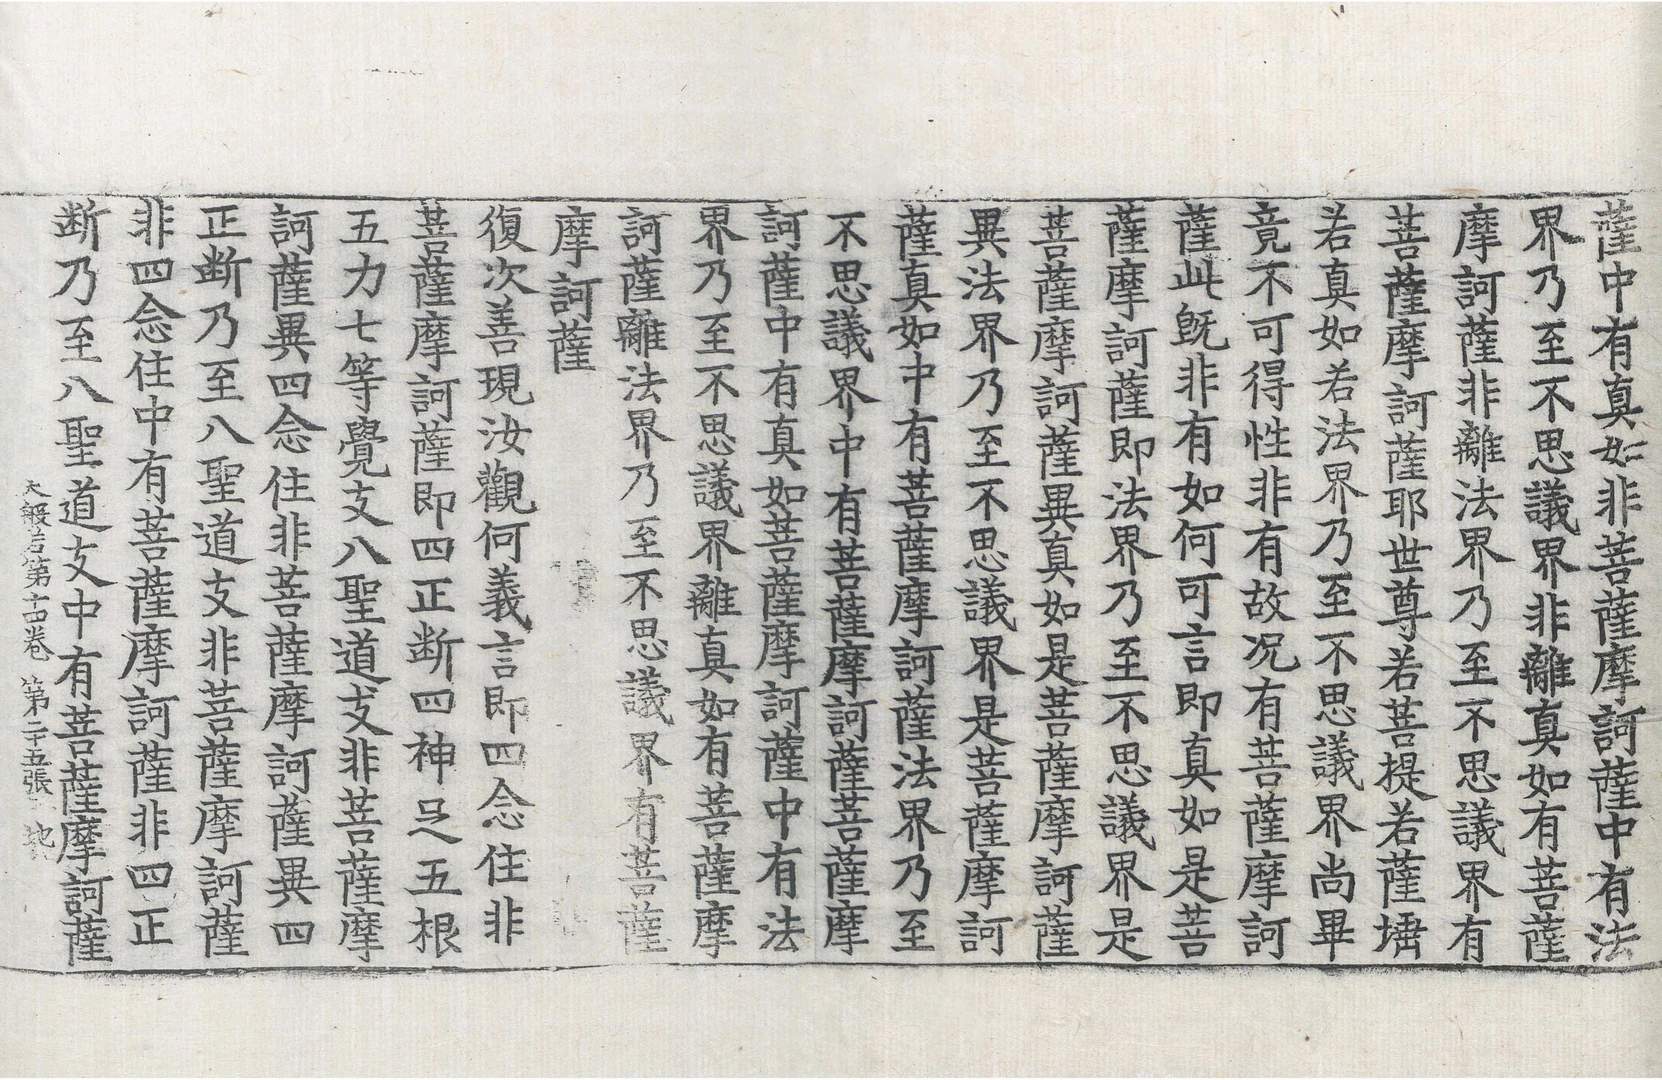 薩中有真如非菩薩摩訶薩中有法
界乃至不思議界非離真如有菩薩
摩訶薩非離法界乃至不思議界有
菩薩摩訶薩耶世尊若菩提若薩埵
若真如若法界乃至不思議界尚畢
竟不可得性非有故况有菩薩摩訶
薩此旣非有如何可言即真如是菩
薩摩訶薩即法界乃至不思議界是
菩薩摩訶薩異真如是菩薩摩訶薩
異法界乃至不思議界是菩薩摩訶
薩真如中有菩薩摩訶薩法界乃至
不思議界中有菩薩摩訶薩菩薩摩
訶薩中有真如菩薩摩訶薩中有法
界乃至不思議界離真如有菩薩摩
訶薩離法界乃至不思議界有菩薩
摩訶薩
復次善現汝觀何義言即四念住非
菩薩摩訶薩即四正断四神足五根
五力七等覺支八聖道支非菩薩摩
訶薩異四念住非菩薩摩訶薩異四
正断乃至八聖道支非菩薩摩訶薩
非四念住中有菩薩摩訶薩非四正
断乃至八聖道支中有菩薩摩訶薩
大般若第十四卷 第二十五張 地